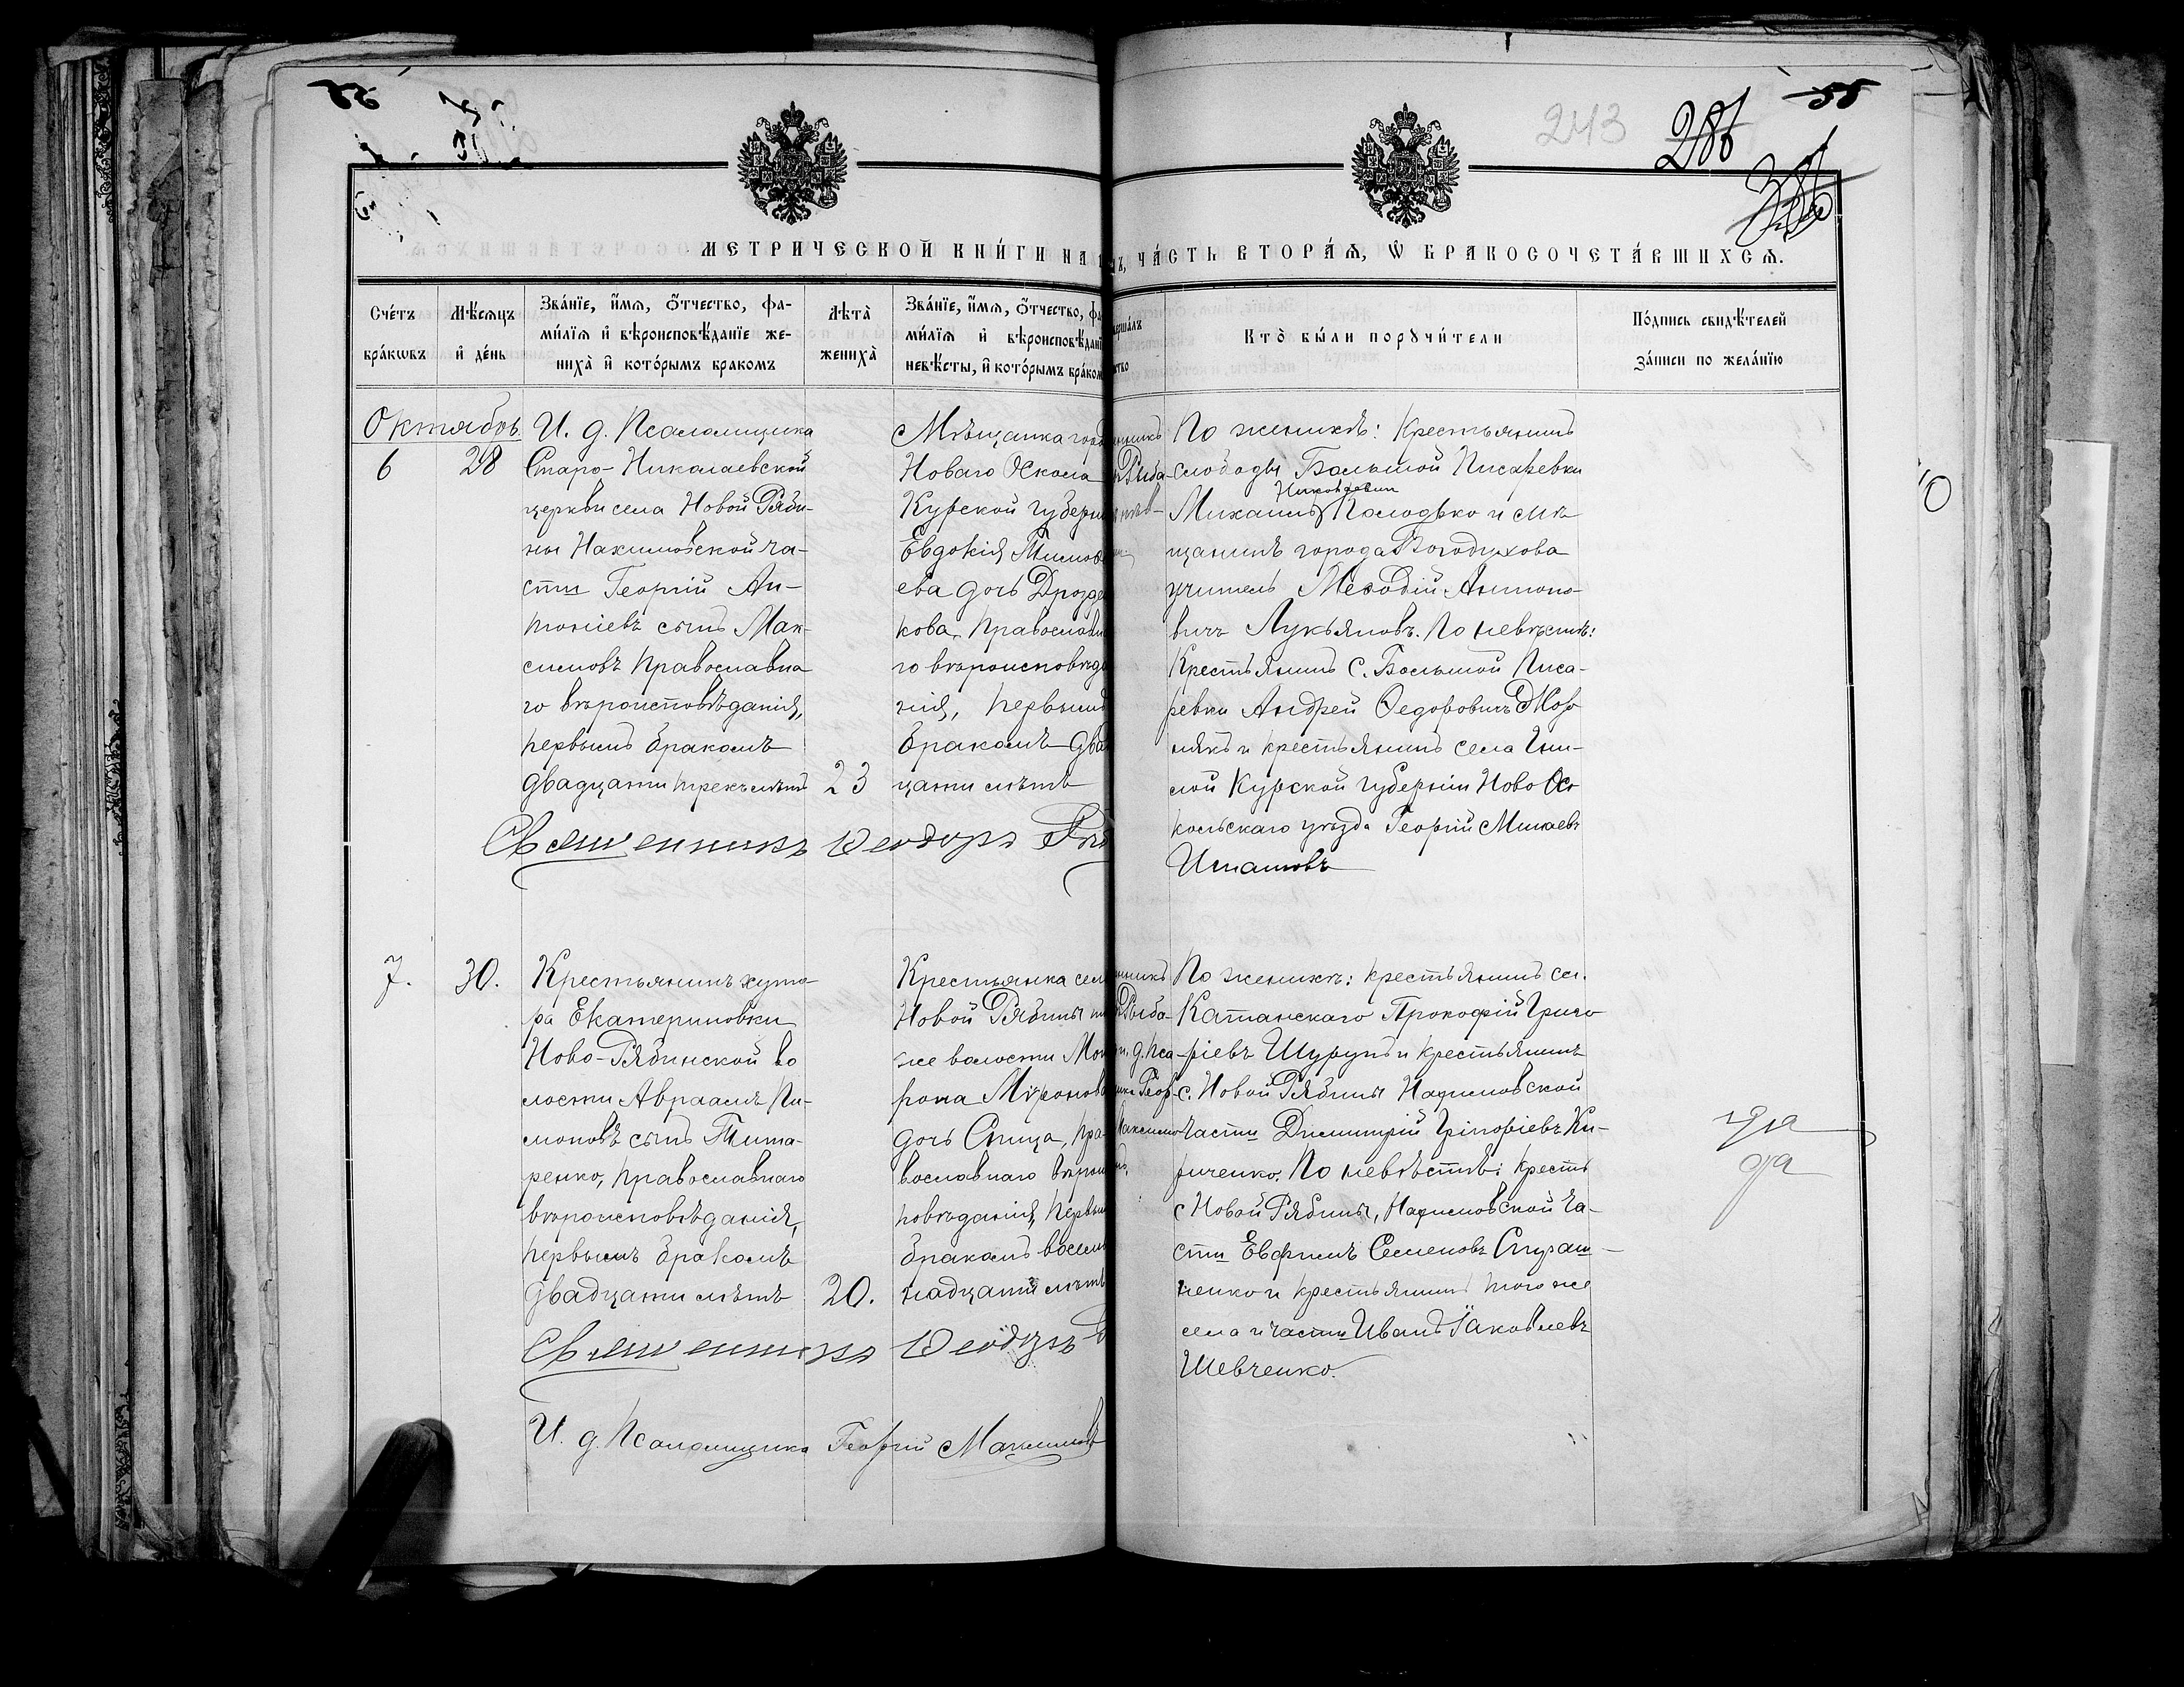 55
243
286
МЕТРИЧЕСКОЙ КНИ́ГИ НА
ЧА́СТЬ ВТОРА́Ѧ, Ѡ҆ БРАКОСОЧЕТА́ВШИХСѦ.
Сче́тъ бра́кѡвъ
Мѣ́сѧцъ и҆ де́нь
Зва́нїе, и҆́мѧ, ѻ҆́тчество, фами́лїѧ и҆ вѣроисповѣ́данїе жениха̀ и҆ кото́рымъ бракомъ
Лѣта̀ жениха̀
Зва́нїе, и҆́мѧ, ѻ҆́тчество,
ми́лїѧ и҆ вѣроисповѣ́дані
невѣ́сты, и҆ кото́рымъ бра́ком
Кто̀ бы́ли порꙋчи́тели
По́дпись свидѣ́телей за́писи по жела́нїю
Октябрь
6
28
И. д. Псаломщика
Старо-Николаевской
церкви села Новой Ряби-
ны Нахимовской ча-
сти Георгій Ан-
тоніевъ сынъ Мак-
симовъ Православна
го вѣроисповѣданія,
первымъ бракомъ
двадцати трехъ лѣтъ
23
Мѣщанка горо
Новаго Оскола
Курской губерн
Евдокія Тимоѳ
ева дочь Дрозде
кова, Православн
го вѣроисповѣда
нія, первымъ
бракомъ два
цати лѣтъ
Священникъ Ѳеодоръ
По женихѣ: Крестьянинъ
слободы Большой Писаревки
Михаилъ Полодько и мѣ
щанинъ города Богодухова
учитель Меѳодій Антоно-
вичъ Лукьяновъ. По невѣстѣ:
Крестьянинъ С. Большой Писа-
ревки Андрей Ѳедоровичъ
и крестьянинъ села
Курской губерніи Ново Ос
кольскаго уѣзда Георгій
7.
30.
Крестьянинъ хуто
ра Екатериновки
Ново-Рябинской во
лости Авраамъ
сынъ Тита-
ренко, православнаго
вѣроисповѣданія,
первымъ бракомъ
двадцати лѣтъ
20.
Крестьянка сел
Новой Рябины
же волости
Миронова
дочь Спица, пра-
вославнаго вѣроис
повѣданія, первым
бракомъ восем
надцати лѣтъ
Священникъ Ѳеодоръ
И. д. Псаломщика Георгій Максимовъ
По женихѣ: крестьянинъ сл.
Катанскаго Прокофій Григо
ріевъ Шурупъ и крестьянинъ
с. Новой Рябины Нахимовской
части Димитрій Григоріевъ Ки-
риченко. По невѣстѣ: крест
с Новой Рябины, Нахимовской ча-
сти Евфимъ Семеновъ
и крестьянинъ того же
села и части Иванъ Іаковлевъ
Шевченко.